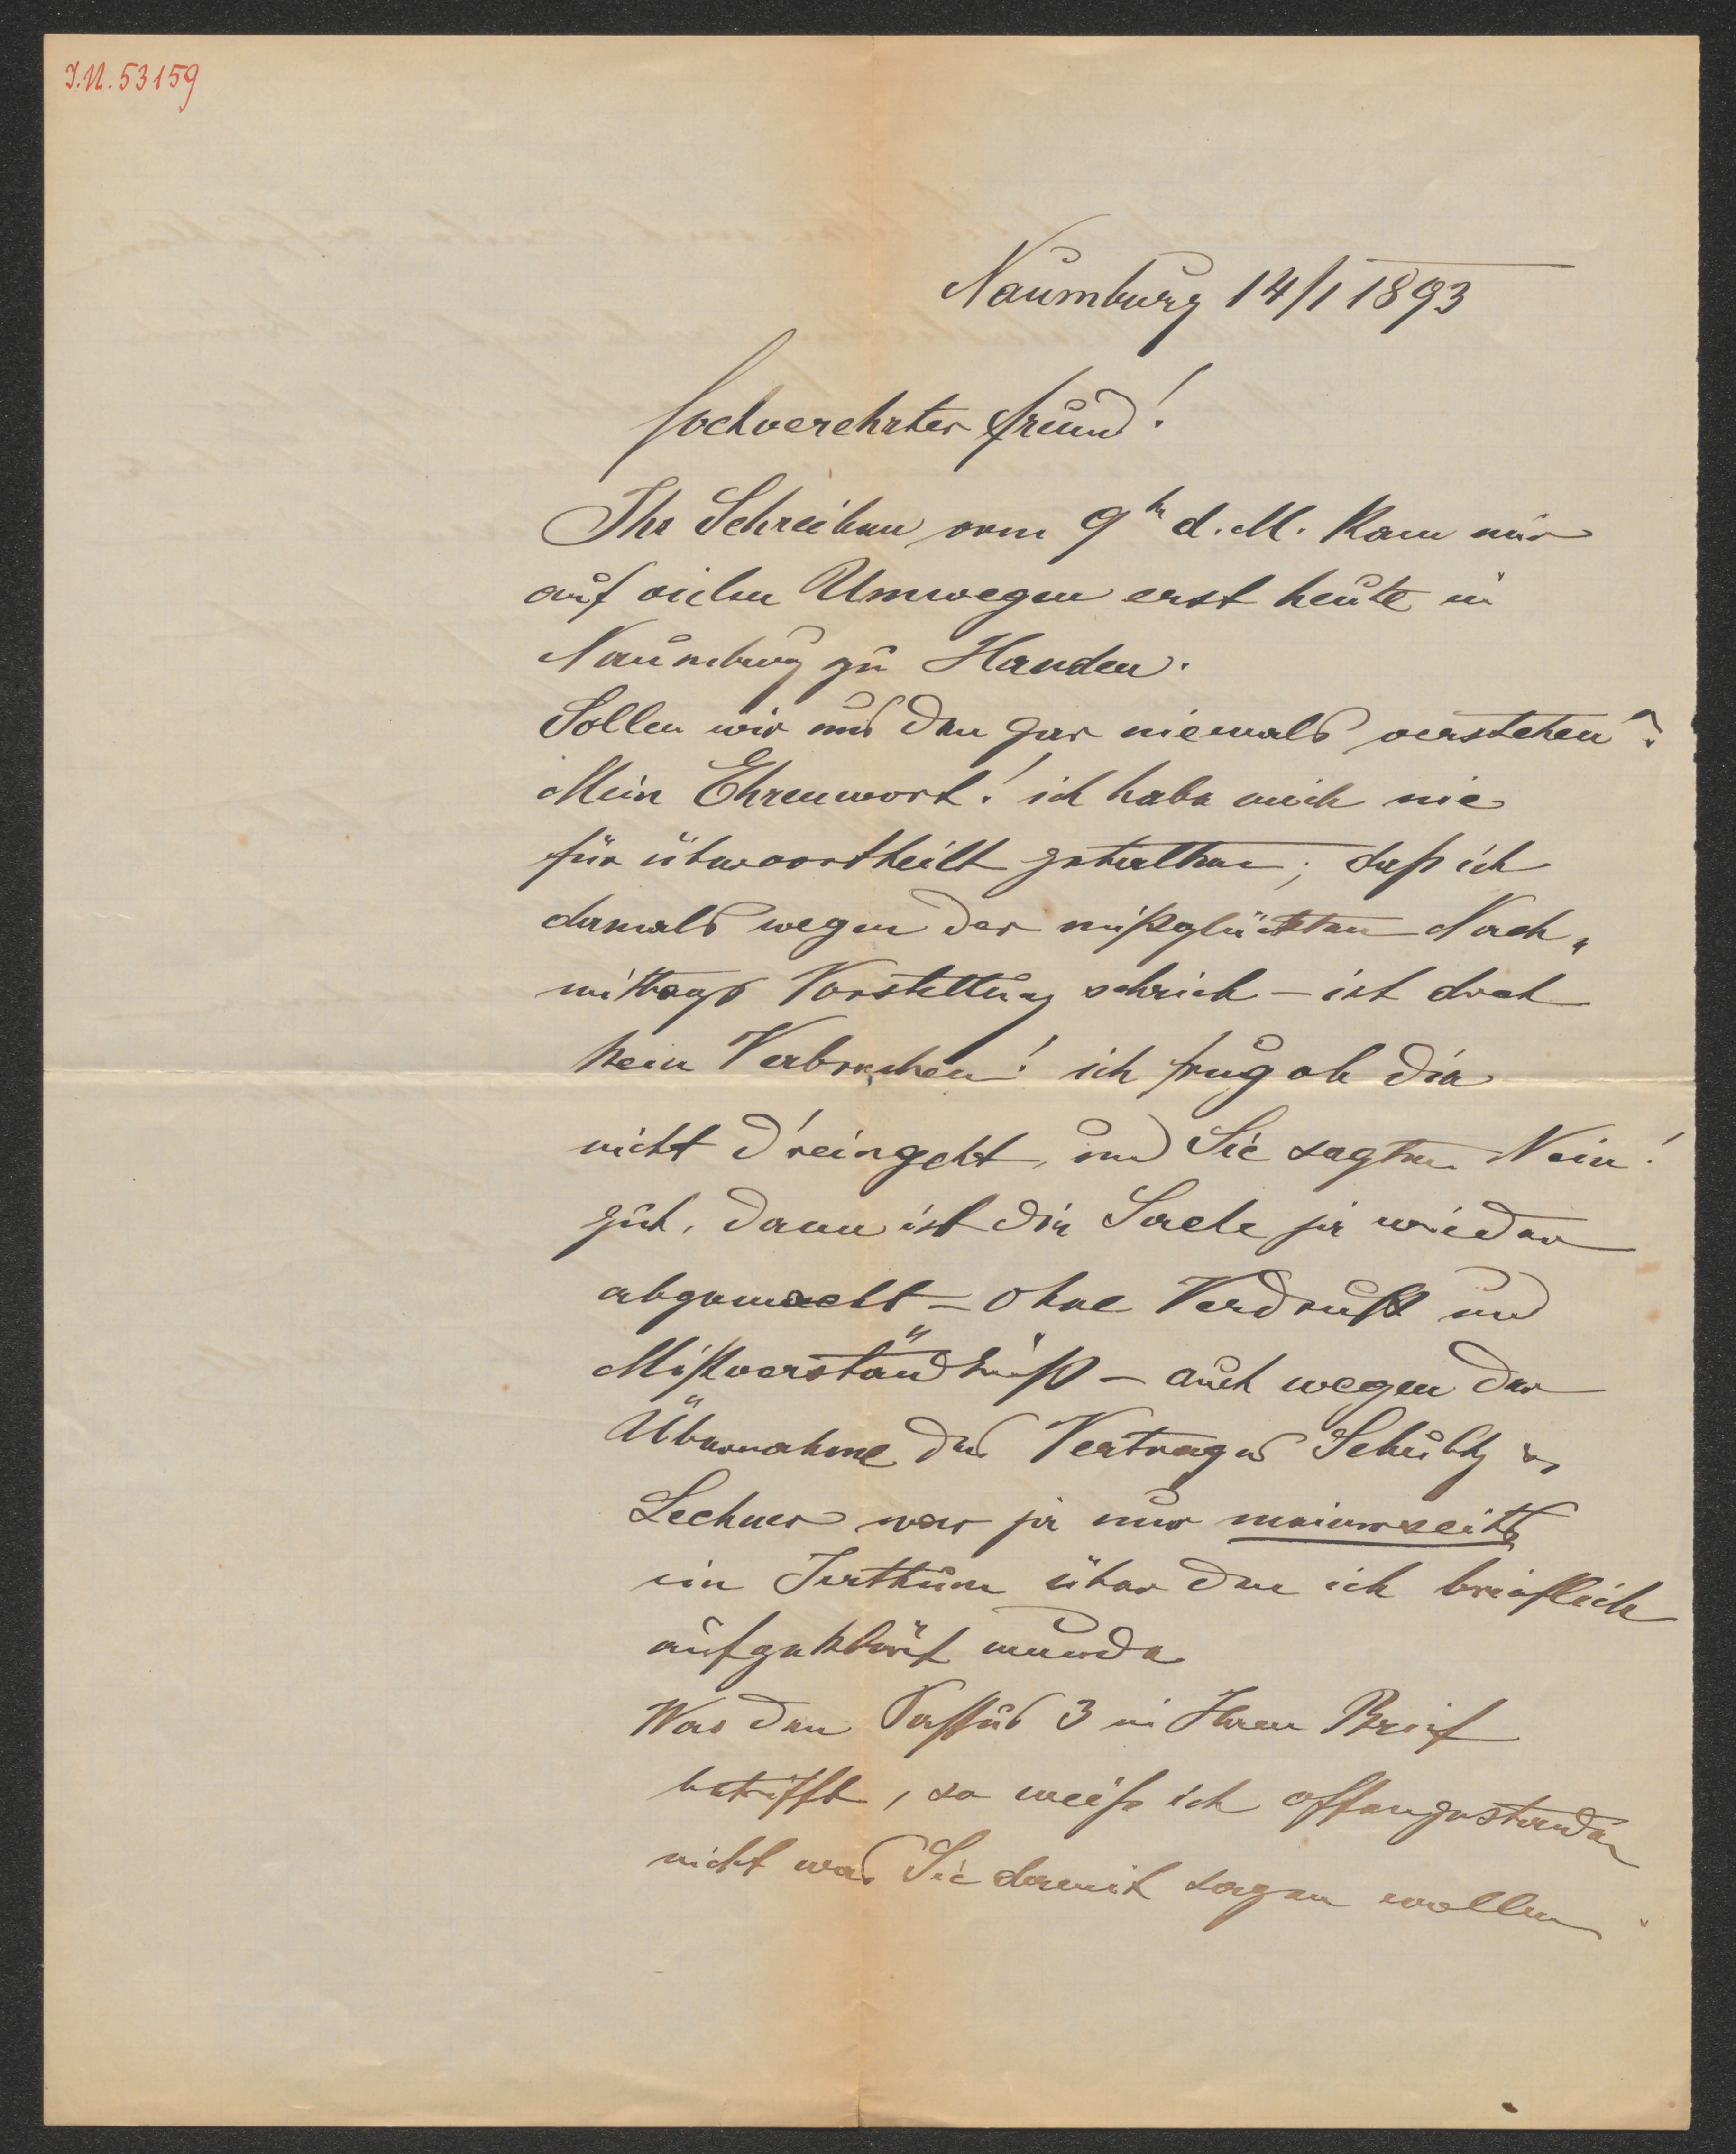 I.N. 53159
Naumburg 14/1 1893
Hochverehrter Freund!
Ihr Schreiben vom 9tn d. M. kam mir
auf vielen Umwegen erst heute in
Naumburg zu Handen.
Sollen wir uns den gar niemals verstehen?
Mein Ehrenwort! ich habe mich nie
für übervortheilt gehalten; daß ich
damals wegen der mißglückten Nach„
mittags Vorstellung schrieb – ist doch
kein Verbrechen! ich frug ob die
nicht d'reingeht, und Sie sagten Nein!
gut, dann ist die Sache ja wieder
abgemacht – ohne Verdruß und
Mißverständniß – auch wegen der
Übernahme des Vertrages Schultz &
Lechner war ja nur meinerseits
ein Irrthum über den ich brieflich
aufgeklärt wurde
Was den Passus 3 in Ihren Brief
betrifft, so weiß ich offengestanden
nicht was Sie damit sagen wollen.